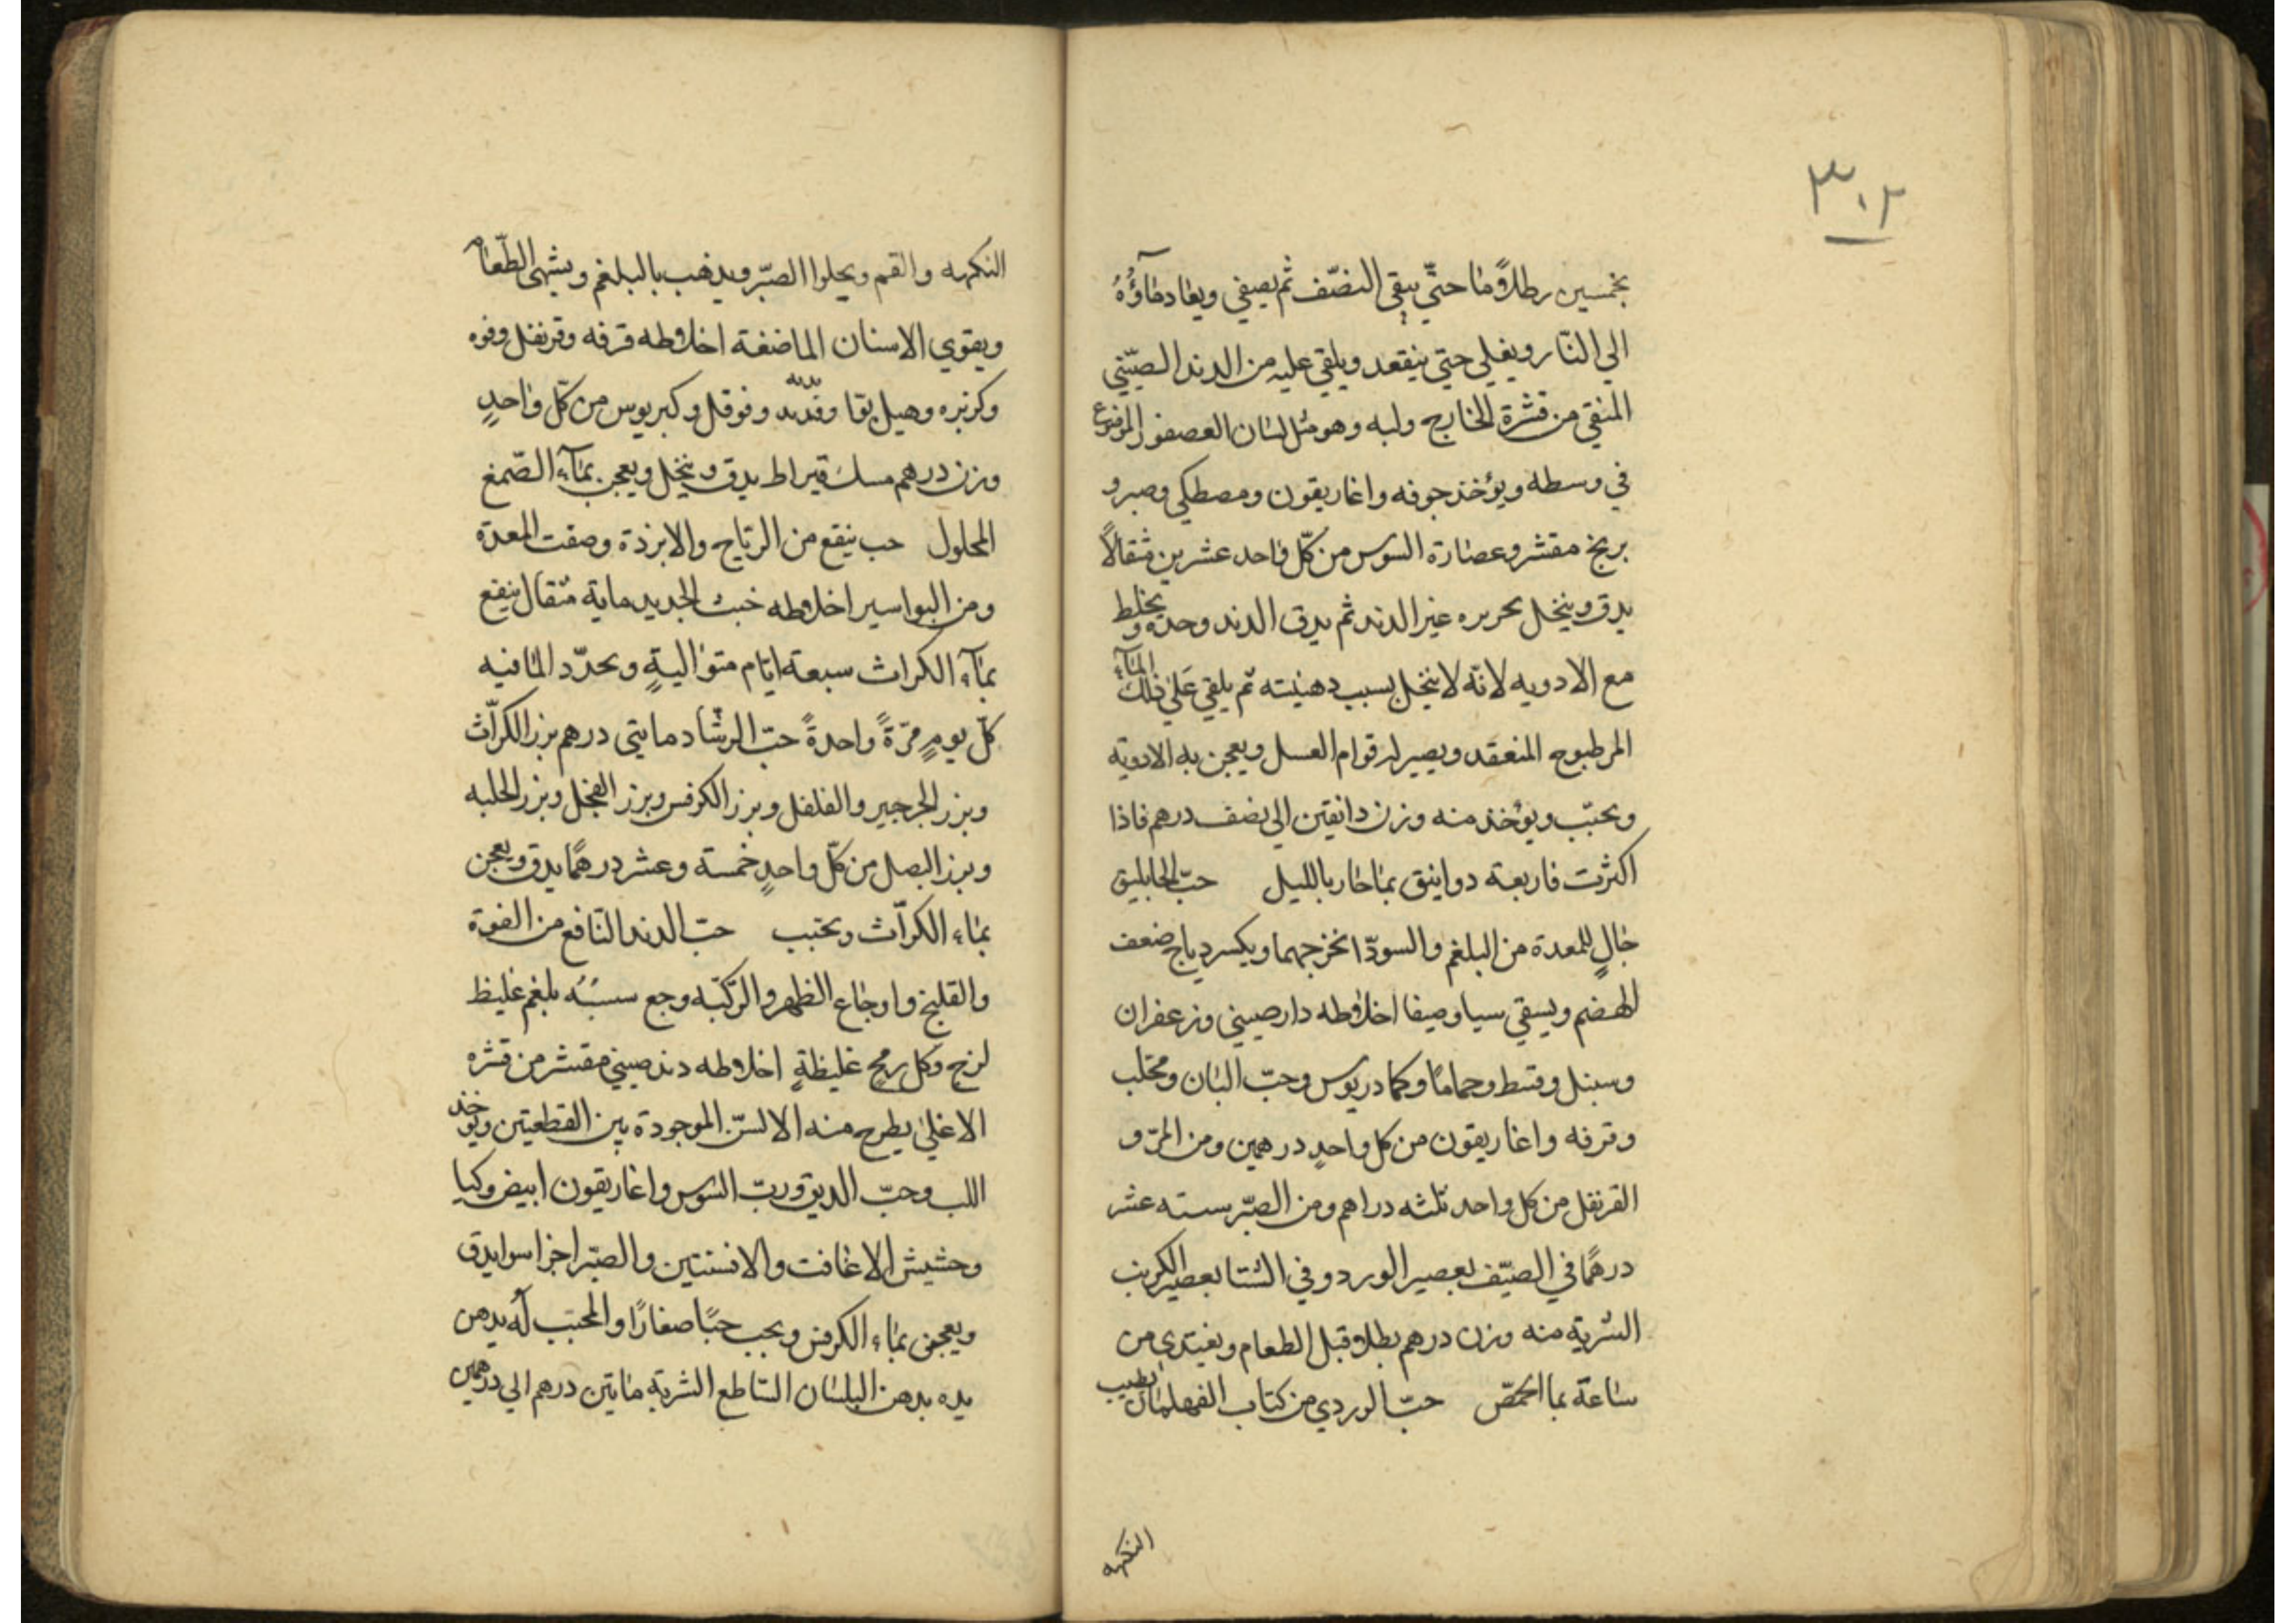 ٣٠٢
بخمسين رطلاً ومٰا حتّي يبقي النصّف ثم يصفي ويعٰاد مٰآؤُهُ
الي النّار ويغلي حتي ينقعد ويلقي عليه من الدند الصيّني
المنقي من قشرة الخارج ولبه وهو مثل لسٰان العصفور الموضوع
في وسطه ويؤخذ جوفه واغاريقون ومصطكي وصبر و
برنج مقشر وعصٰارة السوس من كلّ وٰاحد عشرين مثقالاً
يدق وينخل بحريره غير الدند ثم يدق الدند وحده ويخلط
مع الادويه لانّه لا ينخل بسبب دهنيته ثم يلقي عَليٰ ذلك المٰآء
المرطبوح المنعقد ويصير له قوام العسل ويعجن به الادوية
ويحبّب ويؤخذ منه وزن دانقين الي نصف درهم فاذا
اكثرت فاربعة دوانيق بمٰا حٰار بالليل حبّ الجابليق
جٰالٍ للمعدة من البلغم والسودّا يخرجهما ويكسر رياح ضعف
الهضم ويسقي سيا وصيفا اخلاطه دارصيني وزعفران
وسنبل وقسط وحمامًا وكمادريوس وحبّ البٰان ومحلب
وقرفه واغاريقون من كل واحدٍ درهمين ومن المرّ و
القرنفل من كل واحد ثلثه دراهم ومن الصبّر سته عشر
درهمًا في الصيّف بعصير الورد وفي الشتا بعصير الكرنب
الشربة منه وزن درهم بطلا قبل الطعام ويغتدي من
سٰاعة بما الحمّص حبّ الوردي من كتاب يطيب
النكهه
النكهه والفم ويجلوا الصبّر ويذهب بالبلغم ويشهي الطّعٰام
ويقوي الاسنان الماضغة اخلاطه قرفه وقرنفل وفوه
وكزبره وهيل بوّا وفوفل من كلّ وٰاحدٍ
وزن درهم مسك قيراط يدق وينخل ويعجن بمٰآء الصّمغ
المحلول حب ينفع من الرّياح والابرذة وضعف المعدة
ومن البواسير اخلاطه خبث الحديد ماية مثقال ينقع
بمٰآء الكراث سبعة ايّام متوٰاليةٍ ويجدّد المٰا فيه
كلّ يومٍ مرّةً واحدةً حبّ الرشّاد مايتي درهم بزر الكرّاث
وبزر الجرجير والفلفل وبزر الكرفس وبزر الفجل وبزر الحلبه
وبزر البصل من كلّ واحدٍ خمسة وعشر درهمًا يدق ويعجن
بمٰاء الكرّاث ويحبب حبّ الدند النّافع من الفوة
والقلنج واوجٰاع الظهر والركبّه وجع سببُه بلغم غليظ
لزج وكل ريحٍ غليظةٍ اخلاطه دند صيني مقشر من قشره
الاعليٰ يطرح منه الالسنّ الموجودة بين القطعتين ويؤخذ
اللب وحبّ الديق وربّ السّوس واغاريقون ابيض وكبا
وحشيش الاغافت والافسنتين والصبّر اجزا سوا يدق
ويعجن بمٰاء الكرفس ويحبب حبًّا صغارًا والمحبّب له يدهن
يده بدهن البلسٰان السّاطع الشربة مٰايتين درهم الي درهمين